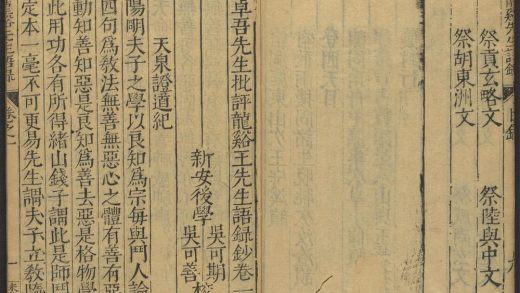 祭貢玄略文 祭陸與中文
祭胡東洲文
卓吾先生批評龍谿王先生語錄鈔卷一
新安後學 吳可期
吳可善
天泉證道紀
陽明夫子之學以良知為宗每與門人論
四句為教法無善無惡心之體有善有惡
動知善知惡是良知為善去惡是格物學
此用功各有所得緒山錢子謂此是師門
定本一毫不可更易先生謂夫子立教隨